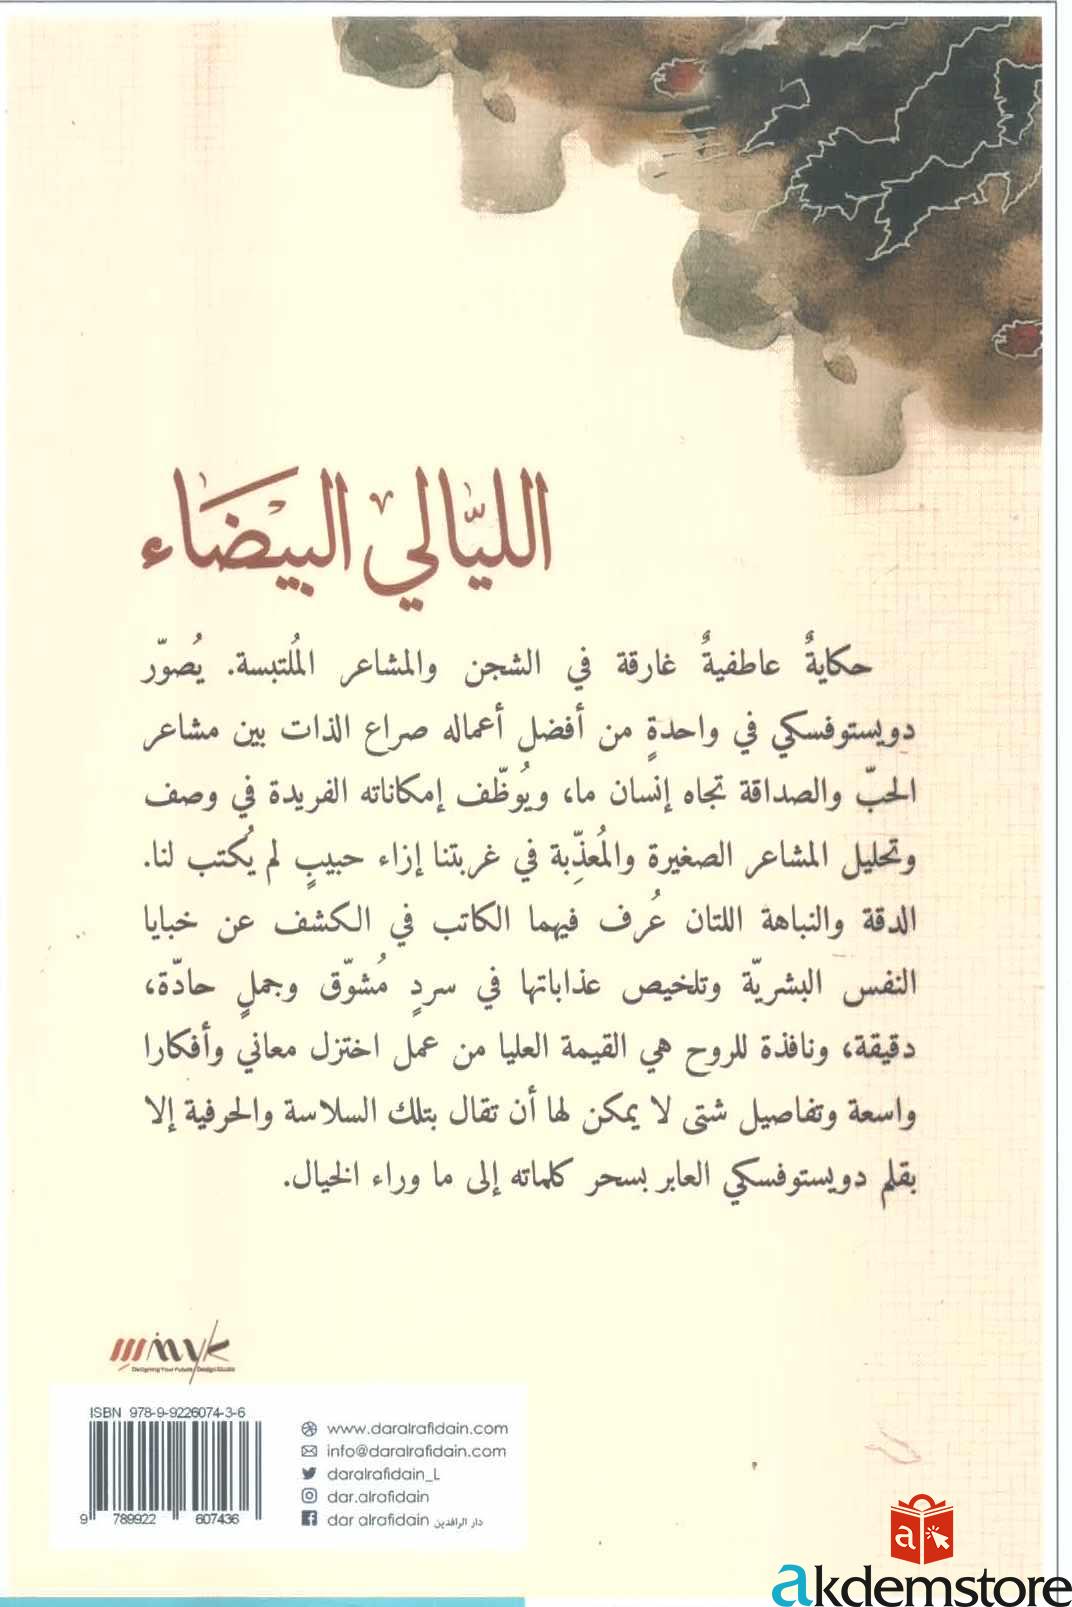 الليّالي البيْضَاء
حكايةٌ عاطفيةٌ غارقة في الشجن والمشاعر المُلتبسة. يُصوّر
دويستوفسكي في واحدةٍ من أفضل أعماله صراع الذات بين مشاعر
الحبّ والصداقة تجاه إنسان ما، ويُوظّف إمكاناته الفريدة في وصف
وتحليل المشاعر الصغيرة والمُعذِّبة في غربتنا إزاء حبيبٍ لم يُكتب لنا.
الدقة والنباهة اللتان عُرف فيهما الكاتب في الكشف عن خبايا
النفس البشريّة وتلخيص عذاباتها في سردٍ مُشوّق وجملٍ حادّة،
دقيقة، ونافذة للروح هي القيمة العليا من عمل اختزل معاني وأفكارا
واسعة وتفاصيل شتى لا يمكن لها أن تقال بتلك السلاسة والحرفية إلا
بقلم دويستوفسكي العابر بسحر كلماته إلى ما وراء الخيال.
Designing Your Future
ISBN 978-9-9226074-3-6
9 789922 607436
www.daralrafidain.com
info@daralrafidain.com
daralrafidain_L
dar.alrafidain
dar alrafidain دار الرافدين
a
akdemstore